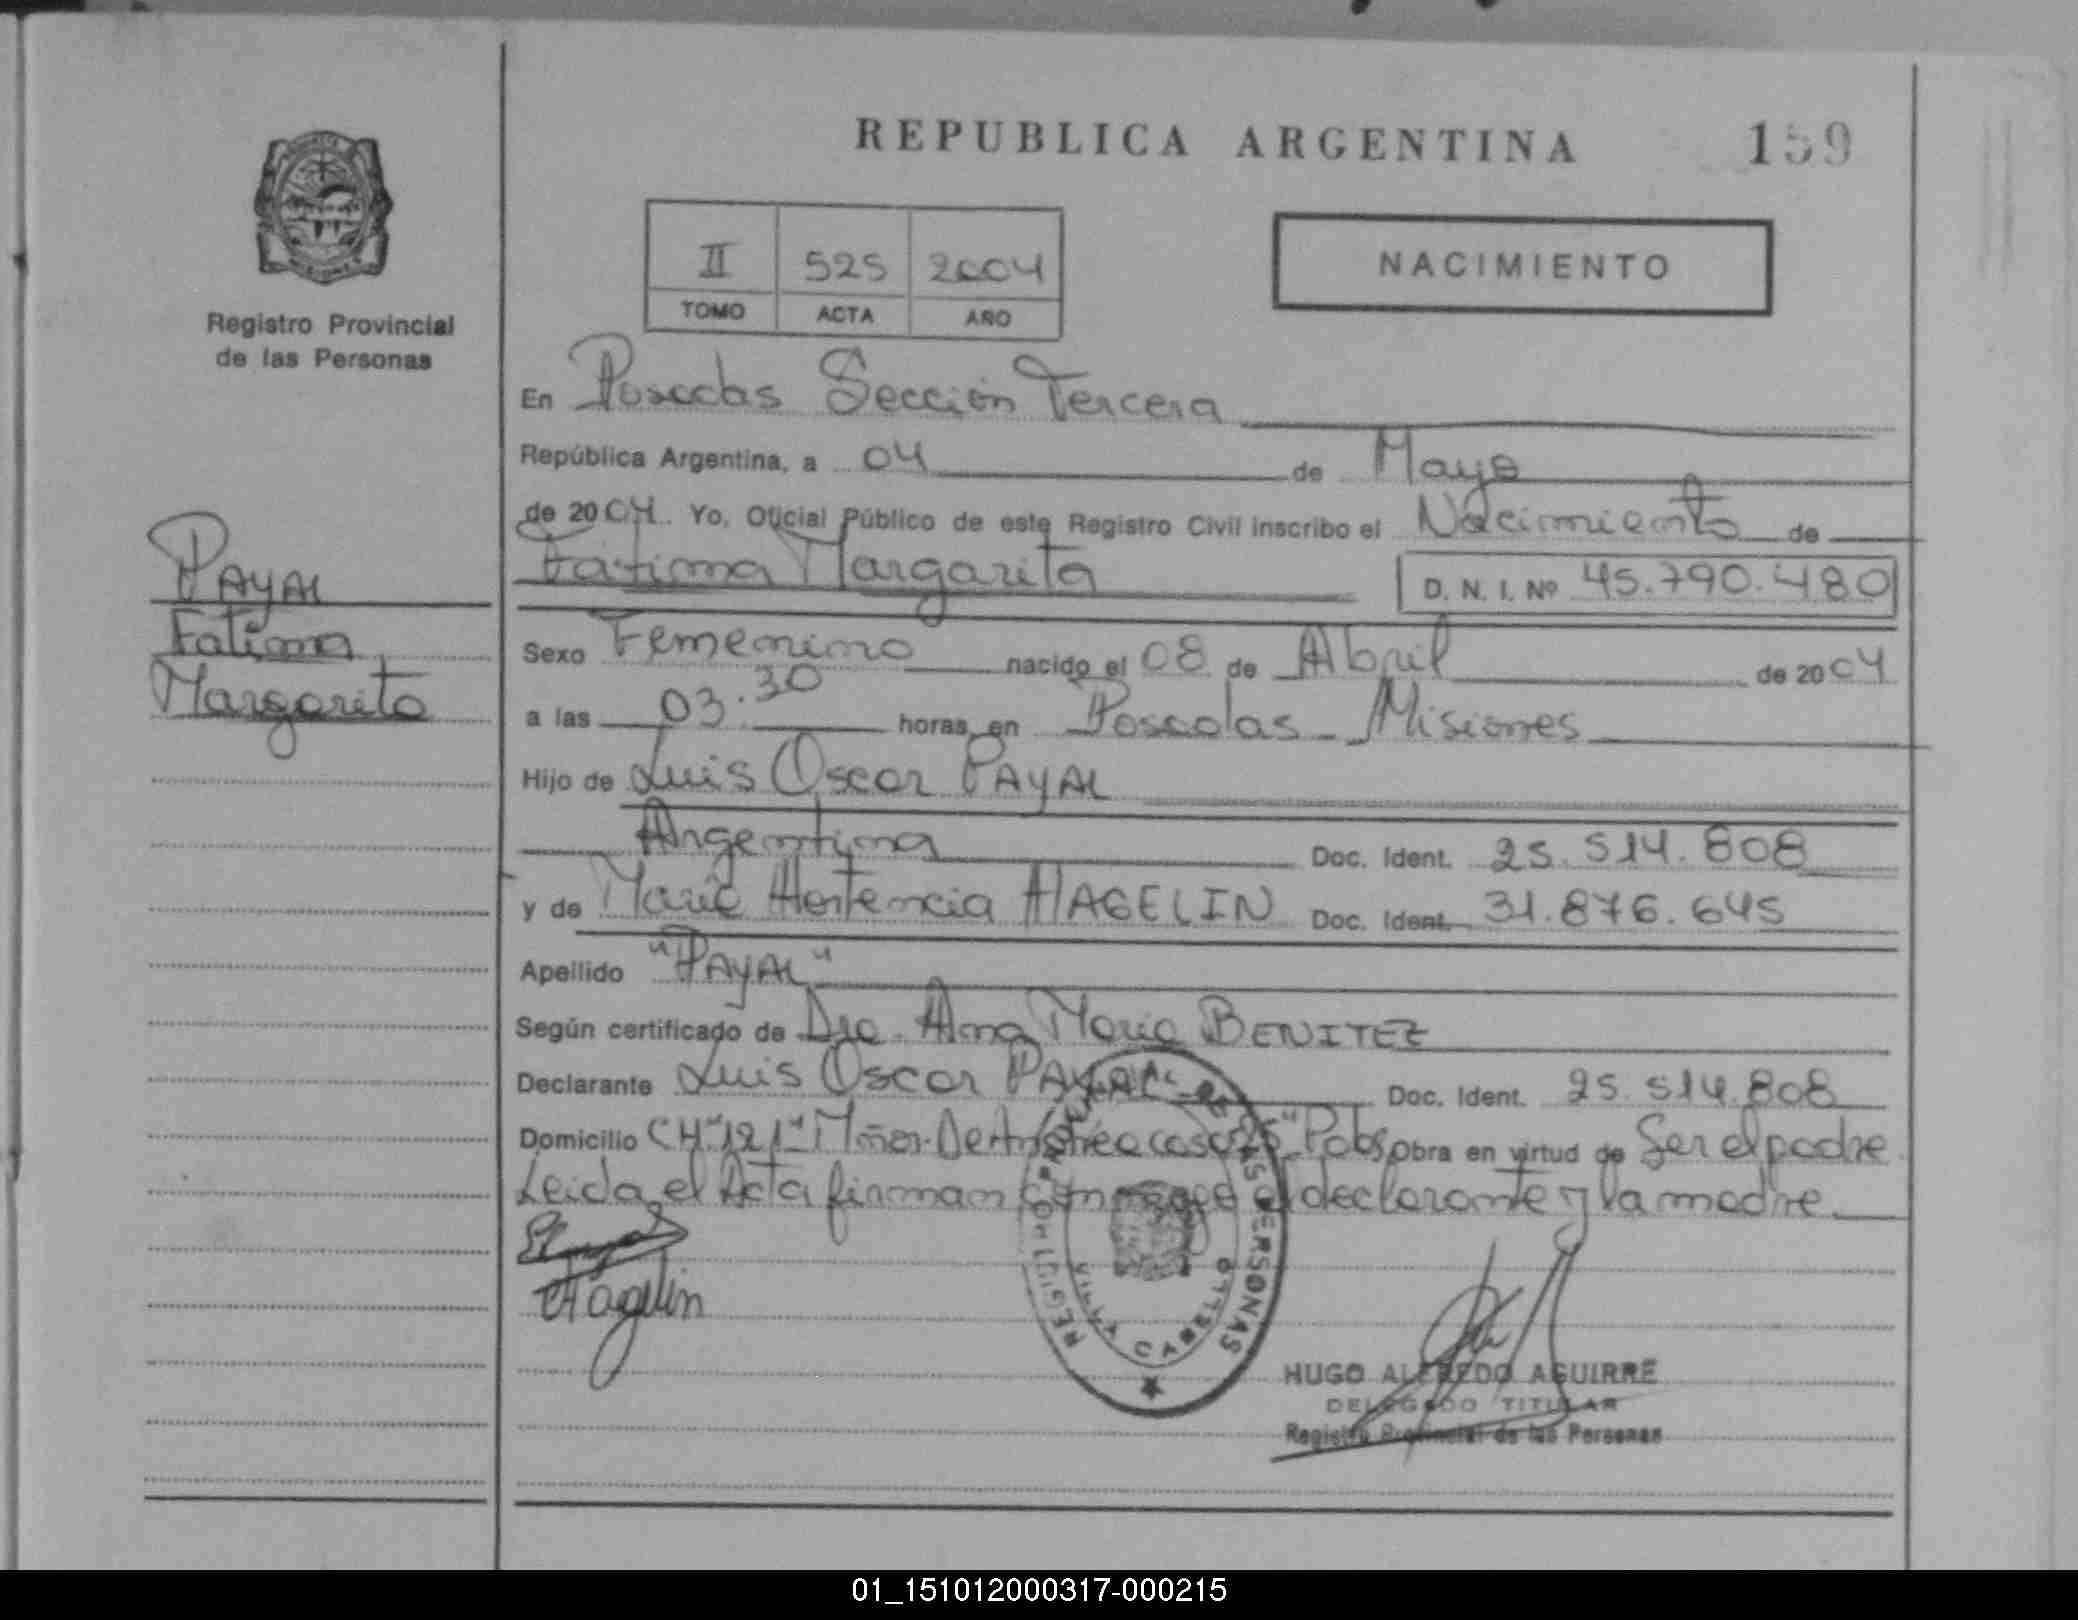 REPUBLICA ARGENTINA 159
II 525 2004
TOMO ACTA AÑO
NACIMIENTO
Registro Provincial
de las Personas
PAYAL
Fatima
Margarita
En Posadas Sección Tercera
República Argentina, a 04 de Mayo
de 2004. Yo, Oficial Público de este Registro Civil inscribo el Nacimiento de
Fátima Margarita D. N. I. Nº 45.790.480
Sexo Femenino nacido el 08 de Abril de 2004
a las 03:30 horas en Posadas - Misiones
Hijo de Luis Oscar PAYAL
Argentina Doc. Ident. 25.514.808
y de María Hortencia HAGELIN Doc. Ident. 31.876.645
Apellido "PAYAL"
Según certificado de Dra. Ana María BENITEZ
Declarante Luis Oscar PAYAL Doc. Ident. 25.514.808
Domicilio CH "121" Obra en virtud de Ser el padre
Leida el Acta firman conmigo el declarante y la madre.
Hagelin
REGISTRO PROVINCIAL DE LAS PERSONAS
VILLA CABELLO
HUGO ALFREDO AGUIRRE
DELEGADO TITULAR
Registro Provincial de las Personas
01_151012000317-000215